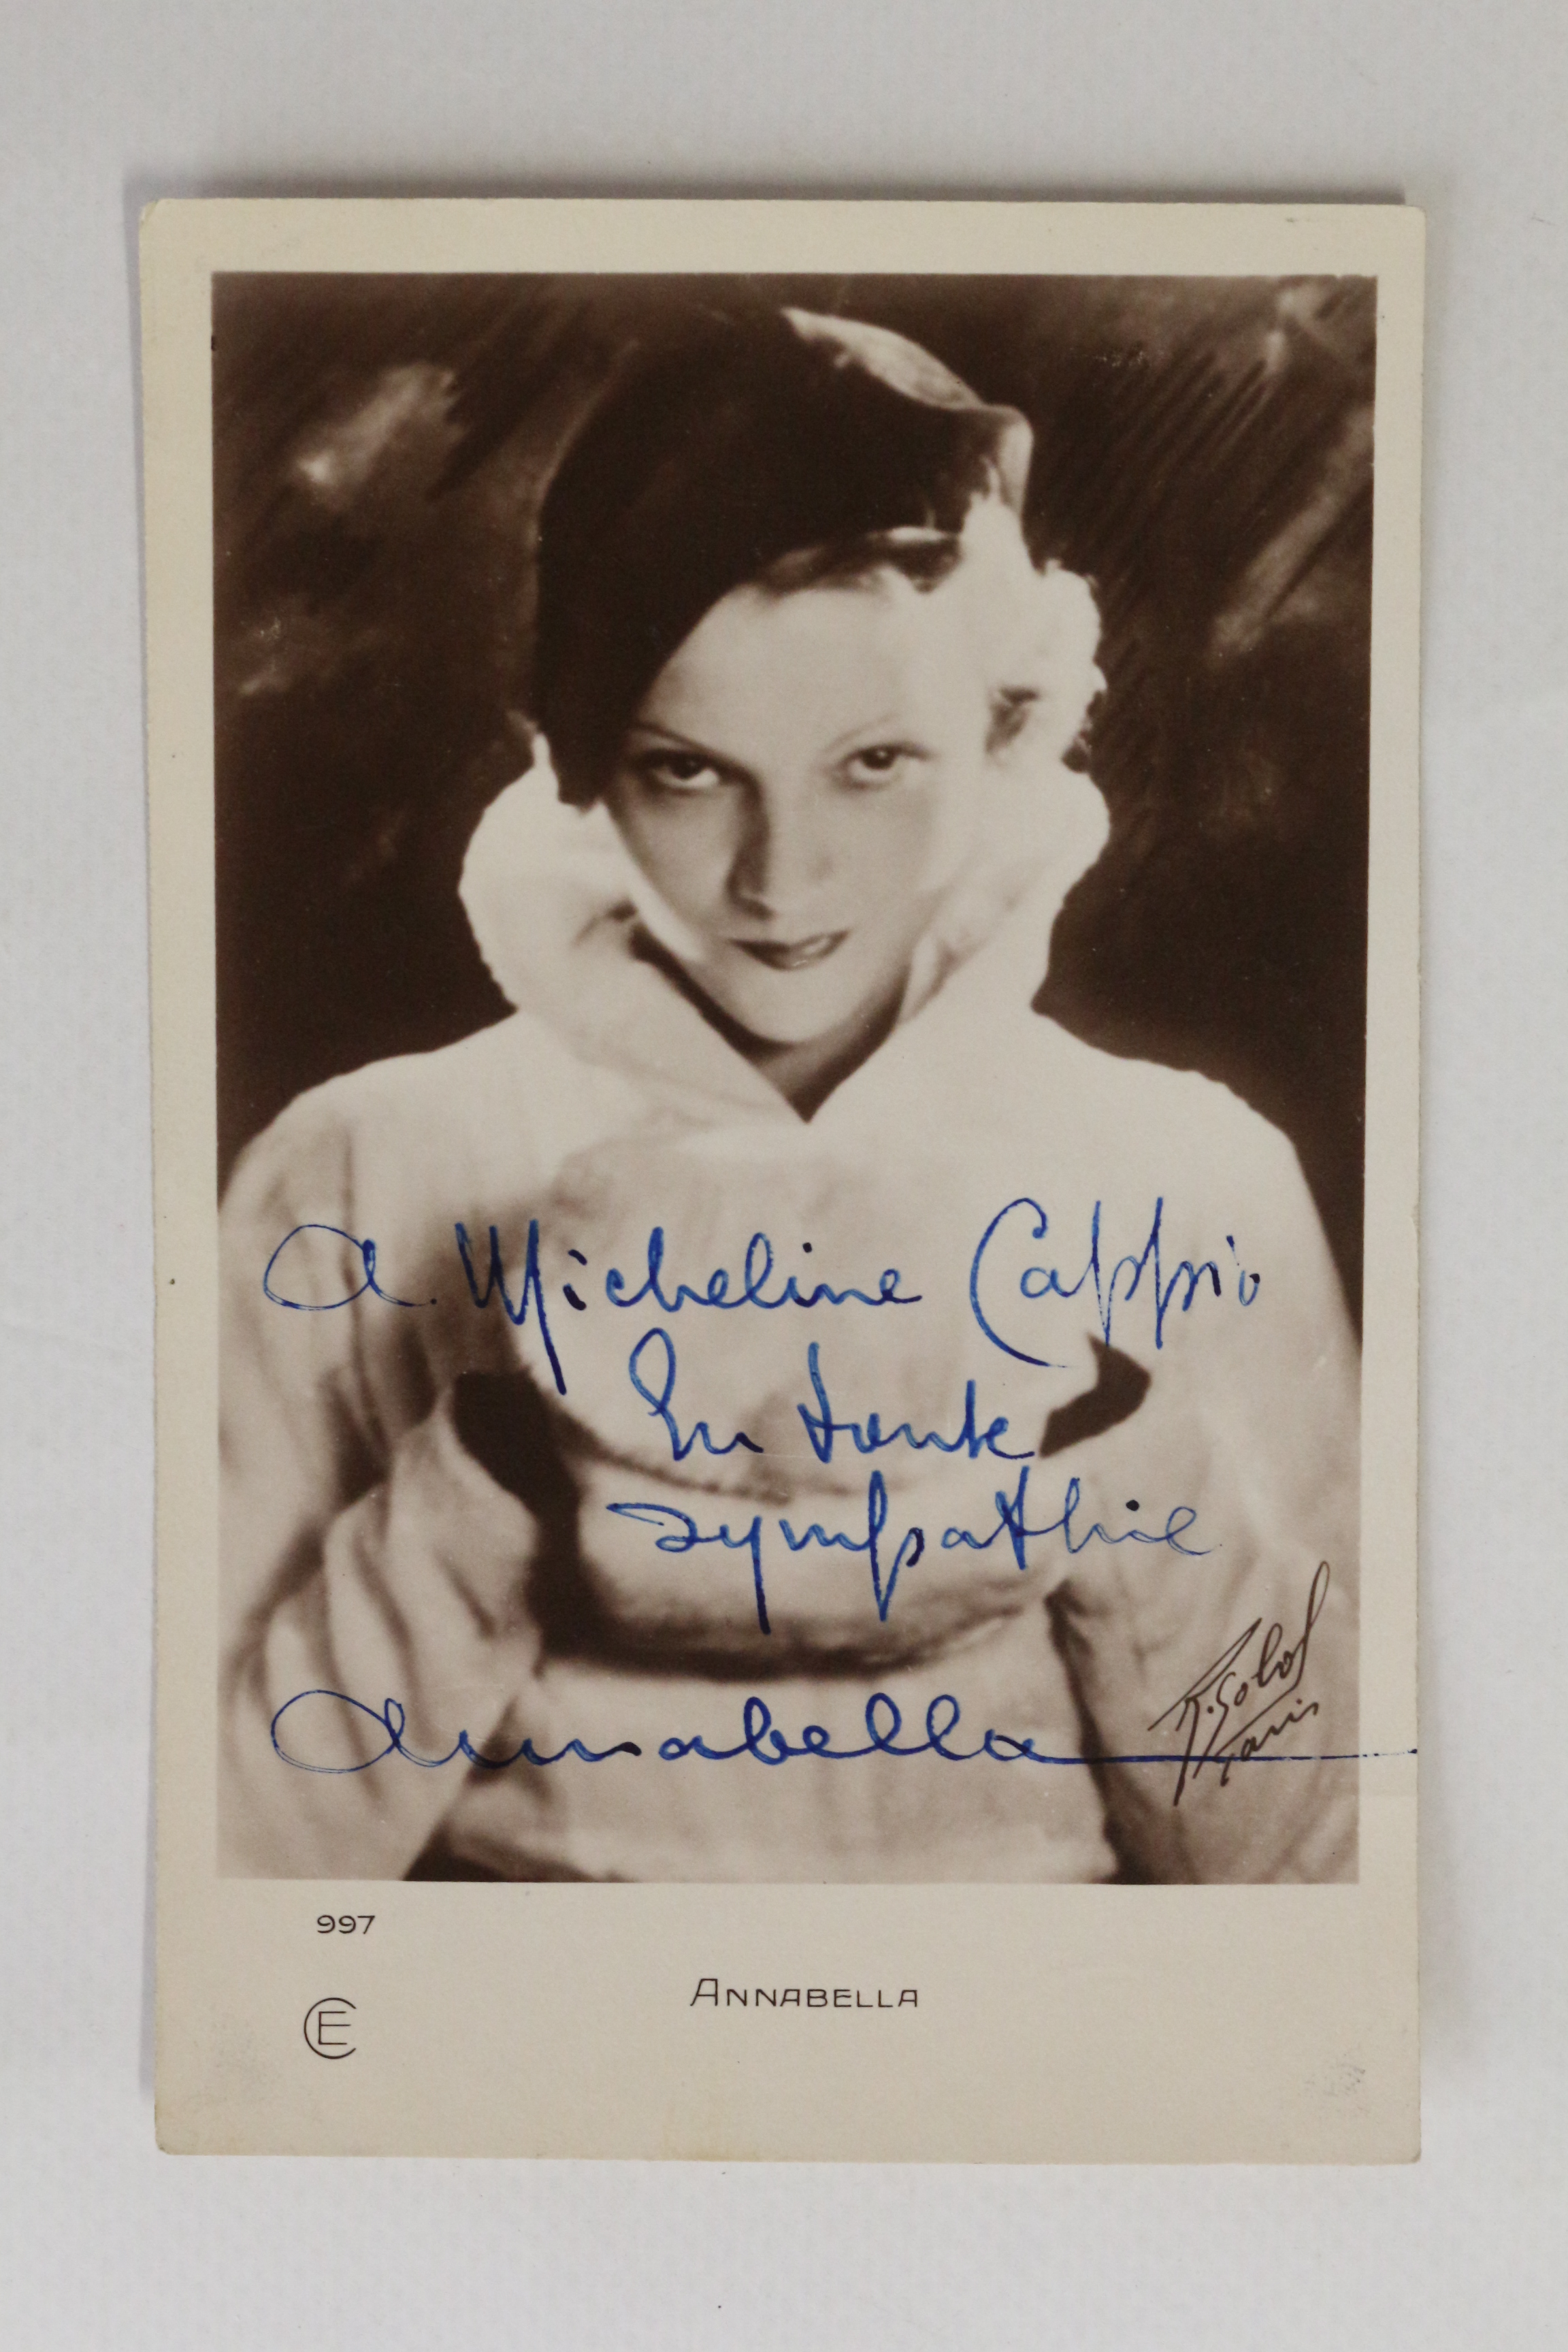 A. Micheline Cappio
En toute
sympathie
Annabella
R. Sobol
Paris
997
ANNABELLA
CE